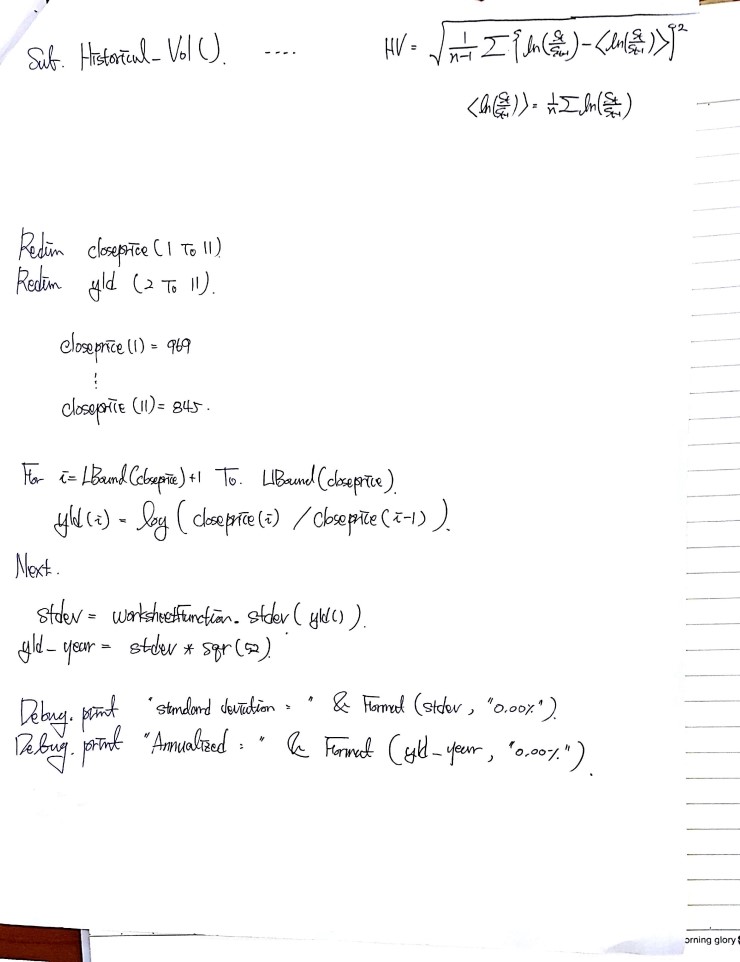 Sub. Historical_Vol(). ....
HV = √(1/(n-1) Σ{ln(St/St-1) - <ln(St/St-1)>}²)
<ln(St/St-1)> = 1/n Σ ln(St/St-1)
Redim closeprice (1 To 11)
Redim yld (2 To 11).
closeprice (1) = 969
⋮
closeprice (11) = 845.
For i = LBound(closeprice)+1 To. UBound(closeprice).
yld(i) = log (closeprice(i) / closeprice(i-1)).
Next.
stdev = worksheetfunction. stdev ( yld() ).
yld_year = stdev * sqr(52)
Debug. print "standard deviation = " & Format (stdev, "0.00%").
Debug. print "Annualized = " & Format (yld_year, "0.00%").
orning glory